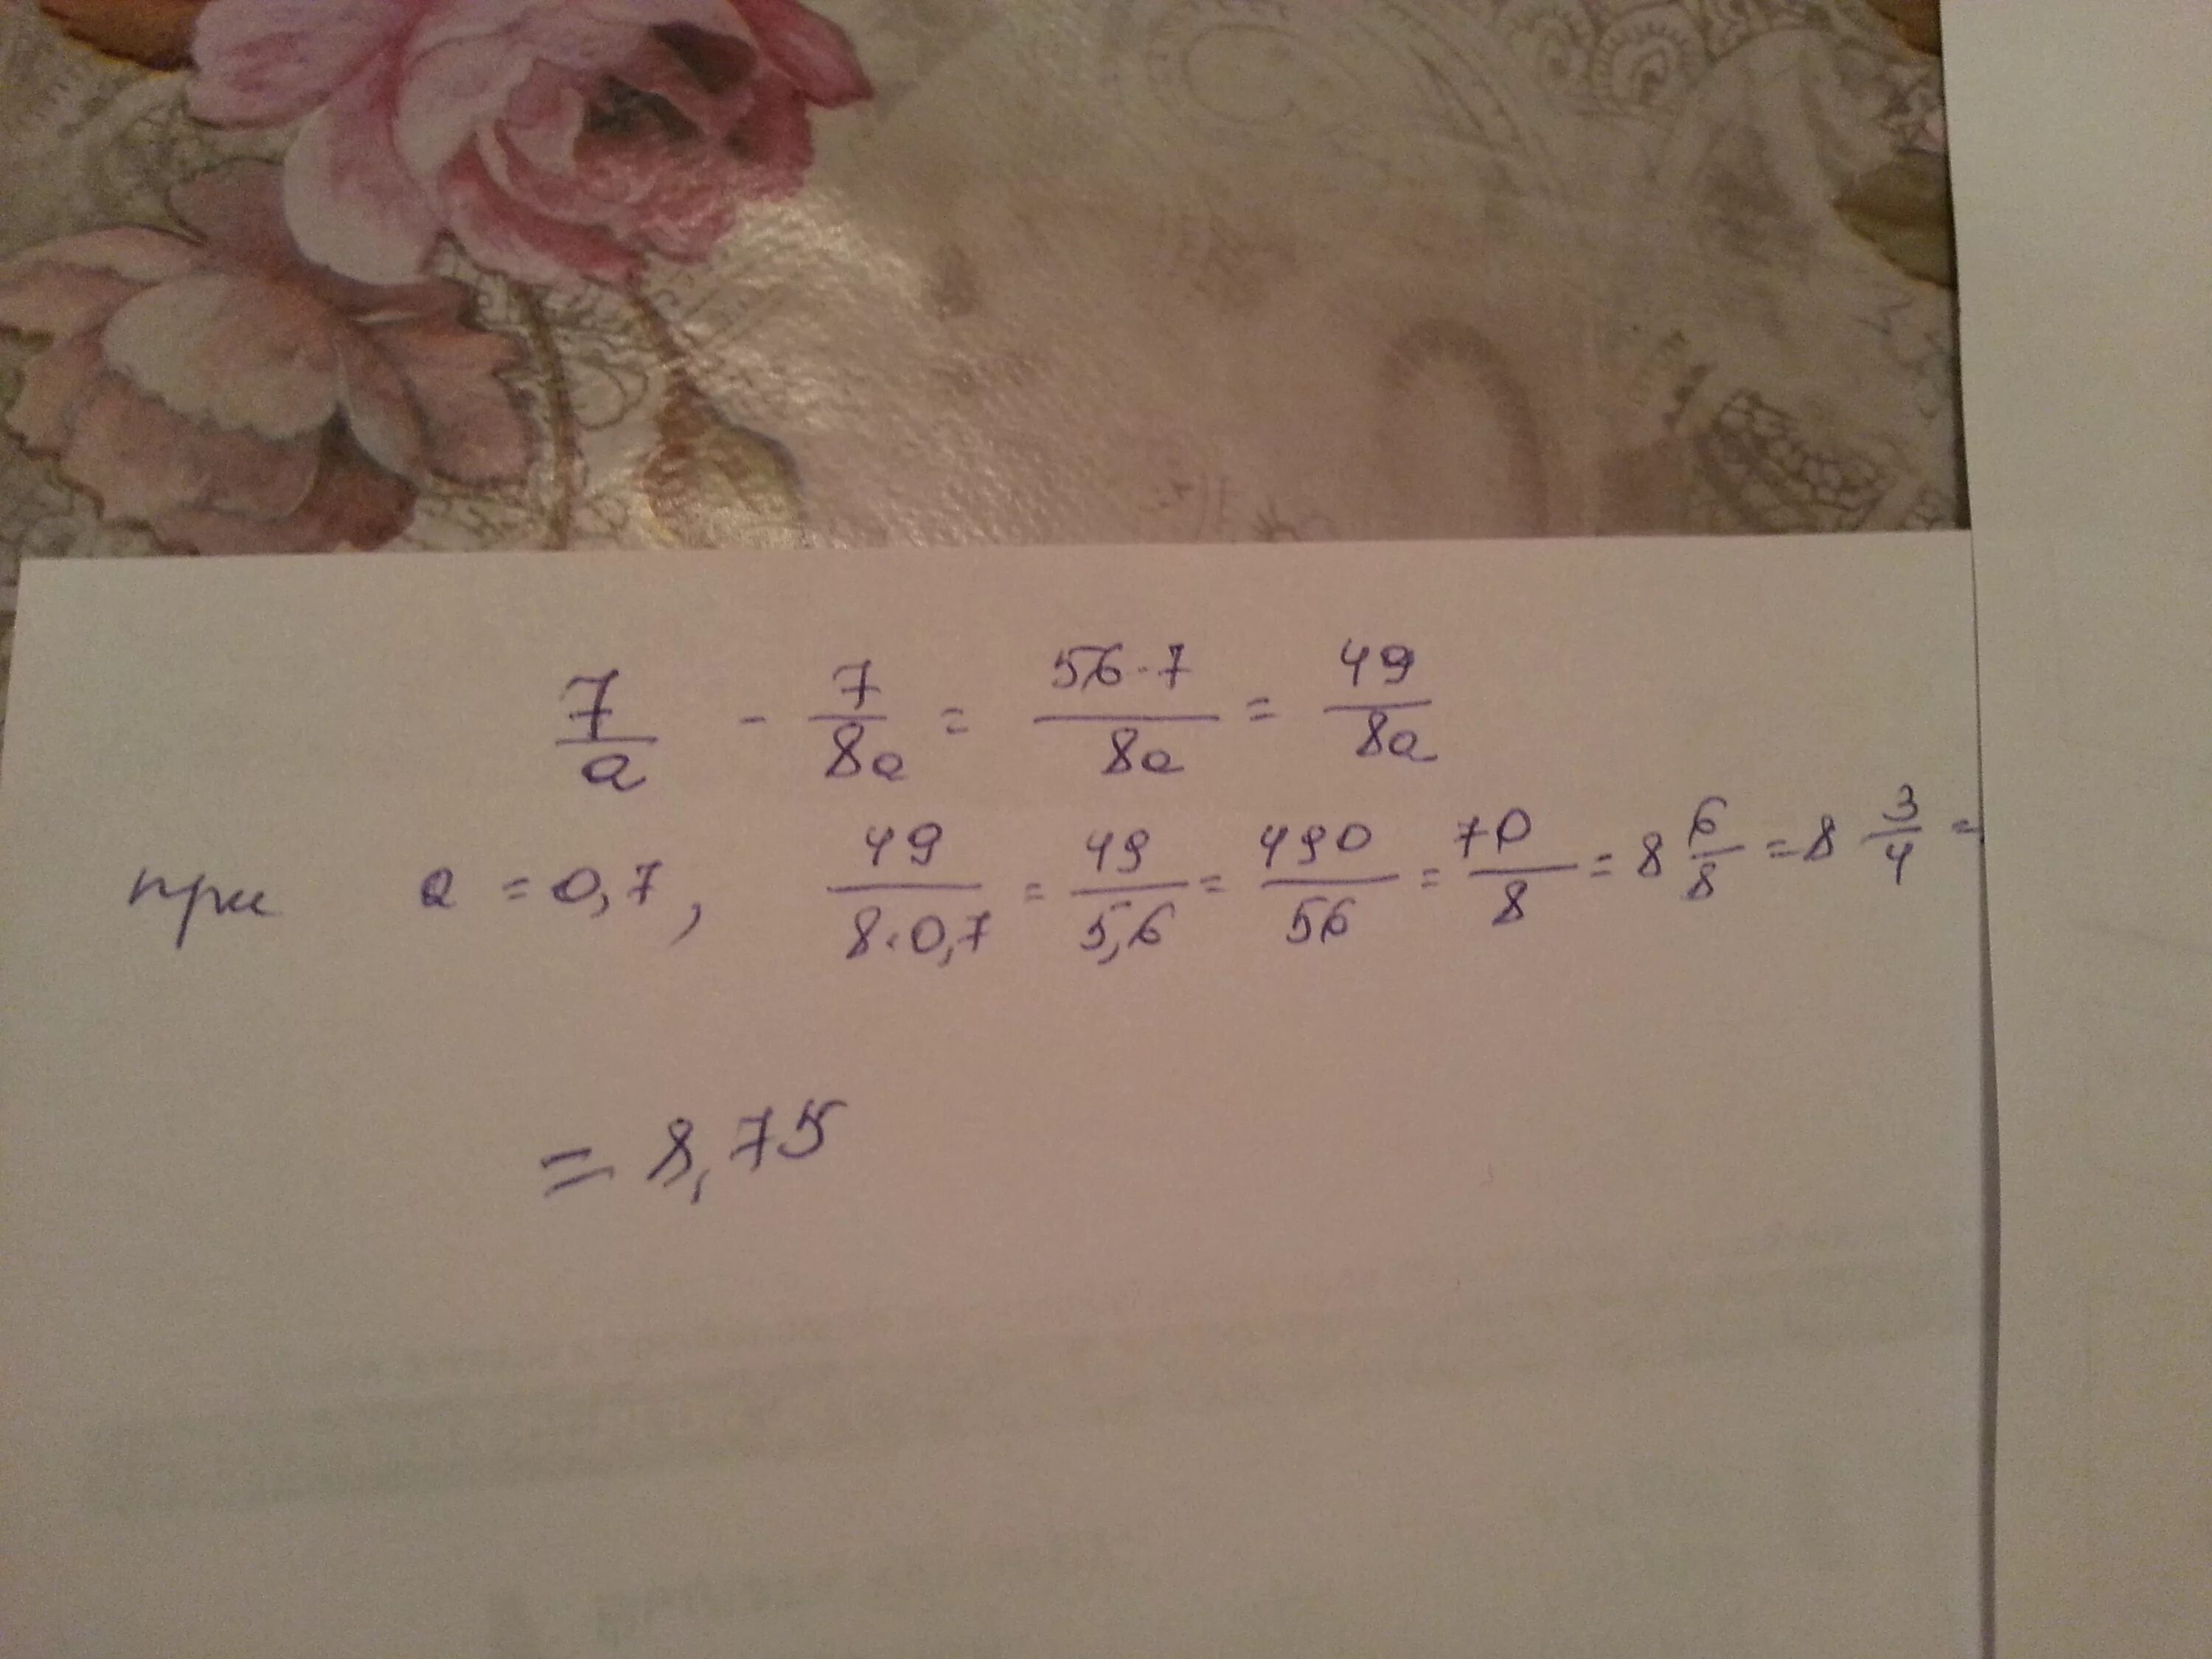 7/a - 7/8a = 56-7/8a = 49/8a
при a = 0,7, 49/8·0,7 = 49/5,6 = 490/56 = 70/8 = 8 6/8 = 8 3/4 =
= 8,75